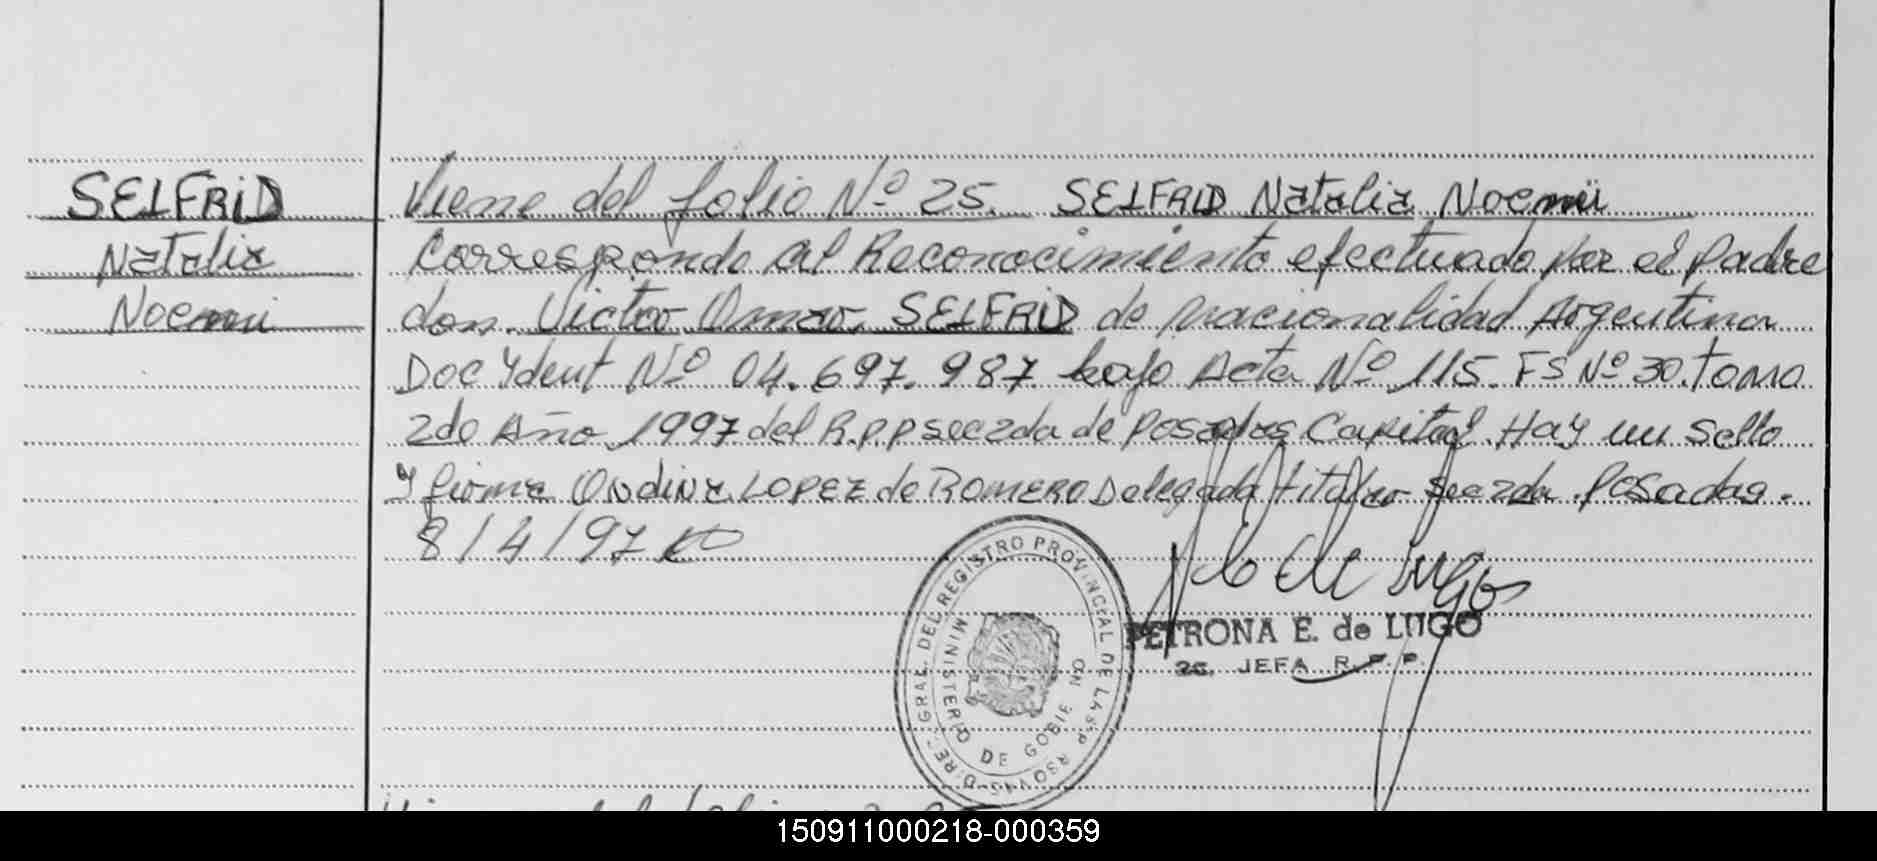 SELFRID
Natalia
Noemi
Viene del folio Nº 25. SELFRID Natalia Noemi
Corresponde al Reconocimiento efectuado por el padre
don Victor Omar SELFRID de nacionalidad Argentina
Doc Ydent Nº 04.697.987 bajo Acta Nº 115. FS Nº 30. tomo
2do Año 1997 del R.p.p secc 2da de Posadas Capital. Hay un sello
y firma Ondina LOPEZ de ROMERO Delegada titular secc 2da Posadas.
8/4/97
DIREC. GRAL. DEL REGISTRO PROVINCIAL DE LAS PERSONAS
MINISTERIO DE GOBIERNO
de Lugo
PETRONA E. de LUGO
JEFA R. P. P.
150911000218-000359